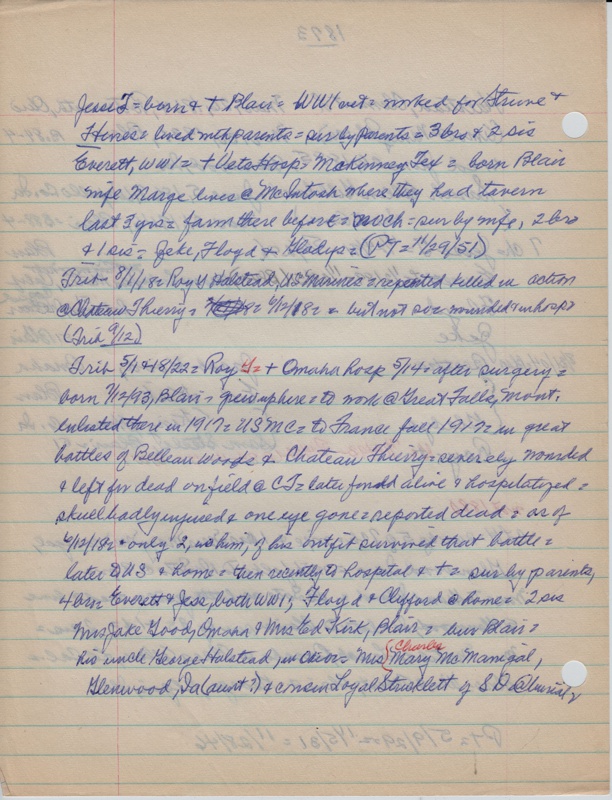 Jesse T = born & † Blair = WW1 vet = worked for Struve &
Hines = lived with parents = sur by parents = 3 bro & 2 sis
Everett, WW1 = † Vets Hosp = McKinney, Tex = born Blair
wife Marge lives @ McIntosh where they had tavern
last 3 yrs = farm there before = no ch = sur by wife, 2 bro
& 1 sis = Jake, Floyd & Gladys = (PT = 11/29/51)
Trib 8/1/18 = Roy Y Halstead, US Marines = reported killed in action
@ Chateau Thierry = 6/12/18 = but not so = wounded & in hosp
(Trib 9/12)
Trib 5/18/22 = Roy Y = † Omaha hosp 5/14 = after surgery =
born 7/12/93, Blair = grew up here = to work @ Great Falls, Mont.
enlisted there in 1917 = USMC = to France fall 1917 = in great
battles of Belleau Woods & Chateau Thierry = severely wounded
& left for dead on field @ CT = later found alive & hospitalized =
skull badly injured & one eye gone = reported dead = as of
6/12/18 = & only 2, w him, of his outfit survived that battle =
later to US & home = then recently to hospital & † = sur by parents,
4 bro = Everett & Jess, both WW1, Floyd & Clifford @ home = 2 sis
Mrs Jake Good, Omaha & Mrs Ed Kirk, Blair = bur Blair =
his uncle George Halstead, = Mrs { Charles
Mary McManigal,
Glenwood, Ia (aunt?) & cousin Loyal Stricklett of SD @ burial